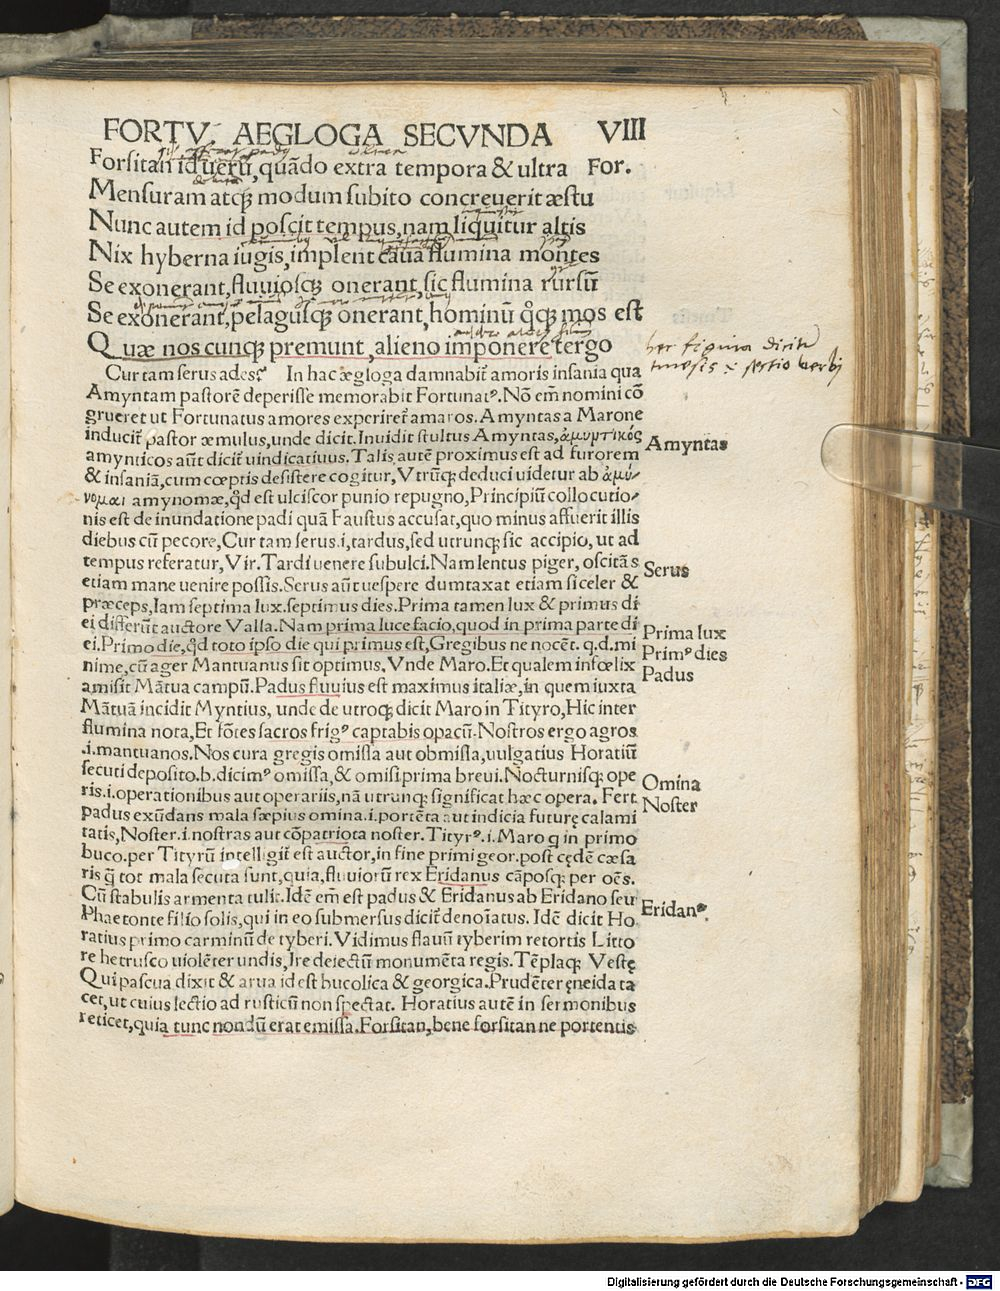 FORTV. AEGLOGA SECVNDA VIII
Forsitan id uerū, quādo extra tempora & ultra For.
Mensuram atqꝫ modum subito concreuerit æstu
Nunc autem id poscit tempus, nam liquitur altis
Nix hyberna iugis, implent caua flumina montes
Se exonerant, fluuiosqꝫ onerant, sic flumina rursū
Se exonerant, pelagusqꝫ onerant, hominū qꝫ mos est
Quæ nos cunqꝫ premunt, alieno imponere tergo
hec figura dicitur
tmesis
Cur tam serus ades? In hac ægloga damnabit᷑ amoris insania qua
Amyntam pastorē deperisse memorabit Fortunatꝰ. Nō em̄ nomini cō
grueret ut Fortunatus amores experiret᷑ amaros. Amyntas a Marone
inducit᷑ pastor æmulus, unde dicit. Inuidit stultus Amyntas, ἀμυντικός
Amyntas
amynticos aūt dicit᷑ uindicatiuus. Talis autē proximus est ad furorem
& insaniā, cum cœptis desistere cogitur, Vtrūqꝫ deduci uidetur ab ἀμύ-
νομαι amynomæ, qd̄ est ulciscor punio repugno, Principiū collocutio-
nis est de inundatione padi quā Faustus accusat, quo minus affuerit illis
diebus cū pecore, Cur tam serus.i. tardus, sed utrunqꝫ sic accipio, ut ad
tempus referatur, Vir. Tardi uenere subulci. Nam lentus piger, oscitās
Serus
etiam mane uenire possis. Serus aūt uespere dumtaxat etiam si celer &
præceps, Iam septima lux. septimus dies. Prima tamen lux & primus di
ei differūt auctore Valla. Nam prima luce facio, quod in prima parte di
Prima lux
ei. Primo die, qd̄ toto ipso die qui primus est, Gregibus ne nocēt. q.d. mi
Primꝰ dies
nime, cū ager Mantuanus sit optimus, Vnde Maro. Et qualem infœlix
Padus
amisit Mātua campū. Padus fluuius est maximus italiæ, in quem iuxta
Mātuā incidit Myntius, unde de utroqꝫ dicit Maro in Tityro, Hic inter
flumina nota, Et fōtes sacros frigꝰ captabis opacū. Nostros ergo agros
.i. mantuanos. Nos cura gregis omissa aut obmissa, uulgatius Horatiū
secuti deposito .b. dicimꝰ omissa, & omisi prima breui. Nocturnisqꝫ ope
Omina
ris.i. operationibus aut operariis, nā utrunqꝫ significat hæc opera. Fert
Noster
padus exūdans mala sæpius omina .i. portēta aut indicia futuræ calami
tatis, Noster .i. nostras aut cōpatriota noster. Tityrꝰ .i. Maro q in primo
buco. per Tityrū intelligit᷑ est auctor, in fine primi geor. post cędē cæsa
ris q̄ tot mala secuta sunt, quia, fluuiorū rex Eridanus cāposqꝫ per oēs.
Cū stabulis armenta tulit. Idē em̄ est padus & Eridanus ab Eridano seu
Eridanꝰ.
Phaetonte filio solis, qui in eo submersus dicit᷑ denoīatus. Idē dicit Ho
ratius primo carminū de tyberi. Vidimus flauū tyberim retortis Litto
re hetrusco uiolēter undis, Ire deiectū monumēta regis. Tēplaqꝫ Vestę
Qui pascua dixit & arua id est bucolica & georgica. Prudēter ęneida ta
cet, ut cuius lectio ad rusticū non spectat. Horatius autē in sermonibus
reticet, quia tunc nondū erat emissa. Forsitan, bene forsitan ne portentis
Digitalisierung gefördert durch die Deutsche Forschungsgemeinschaft - DFG